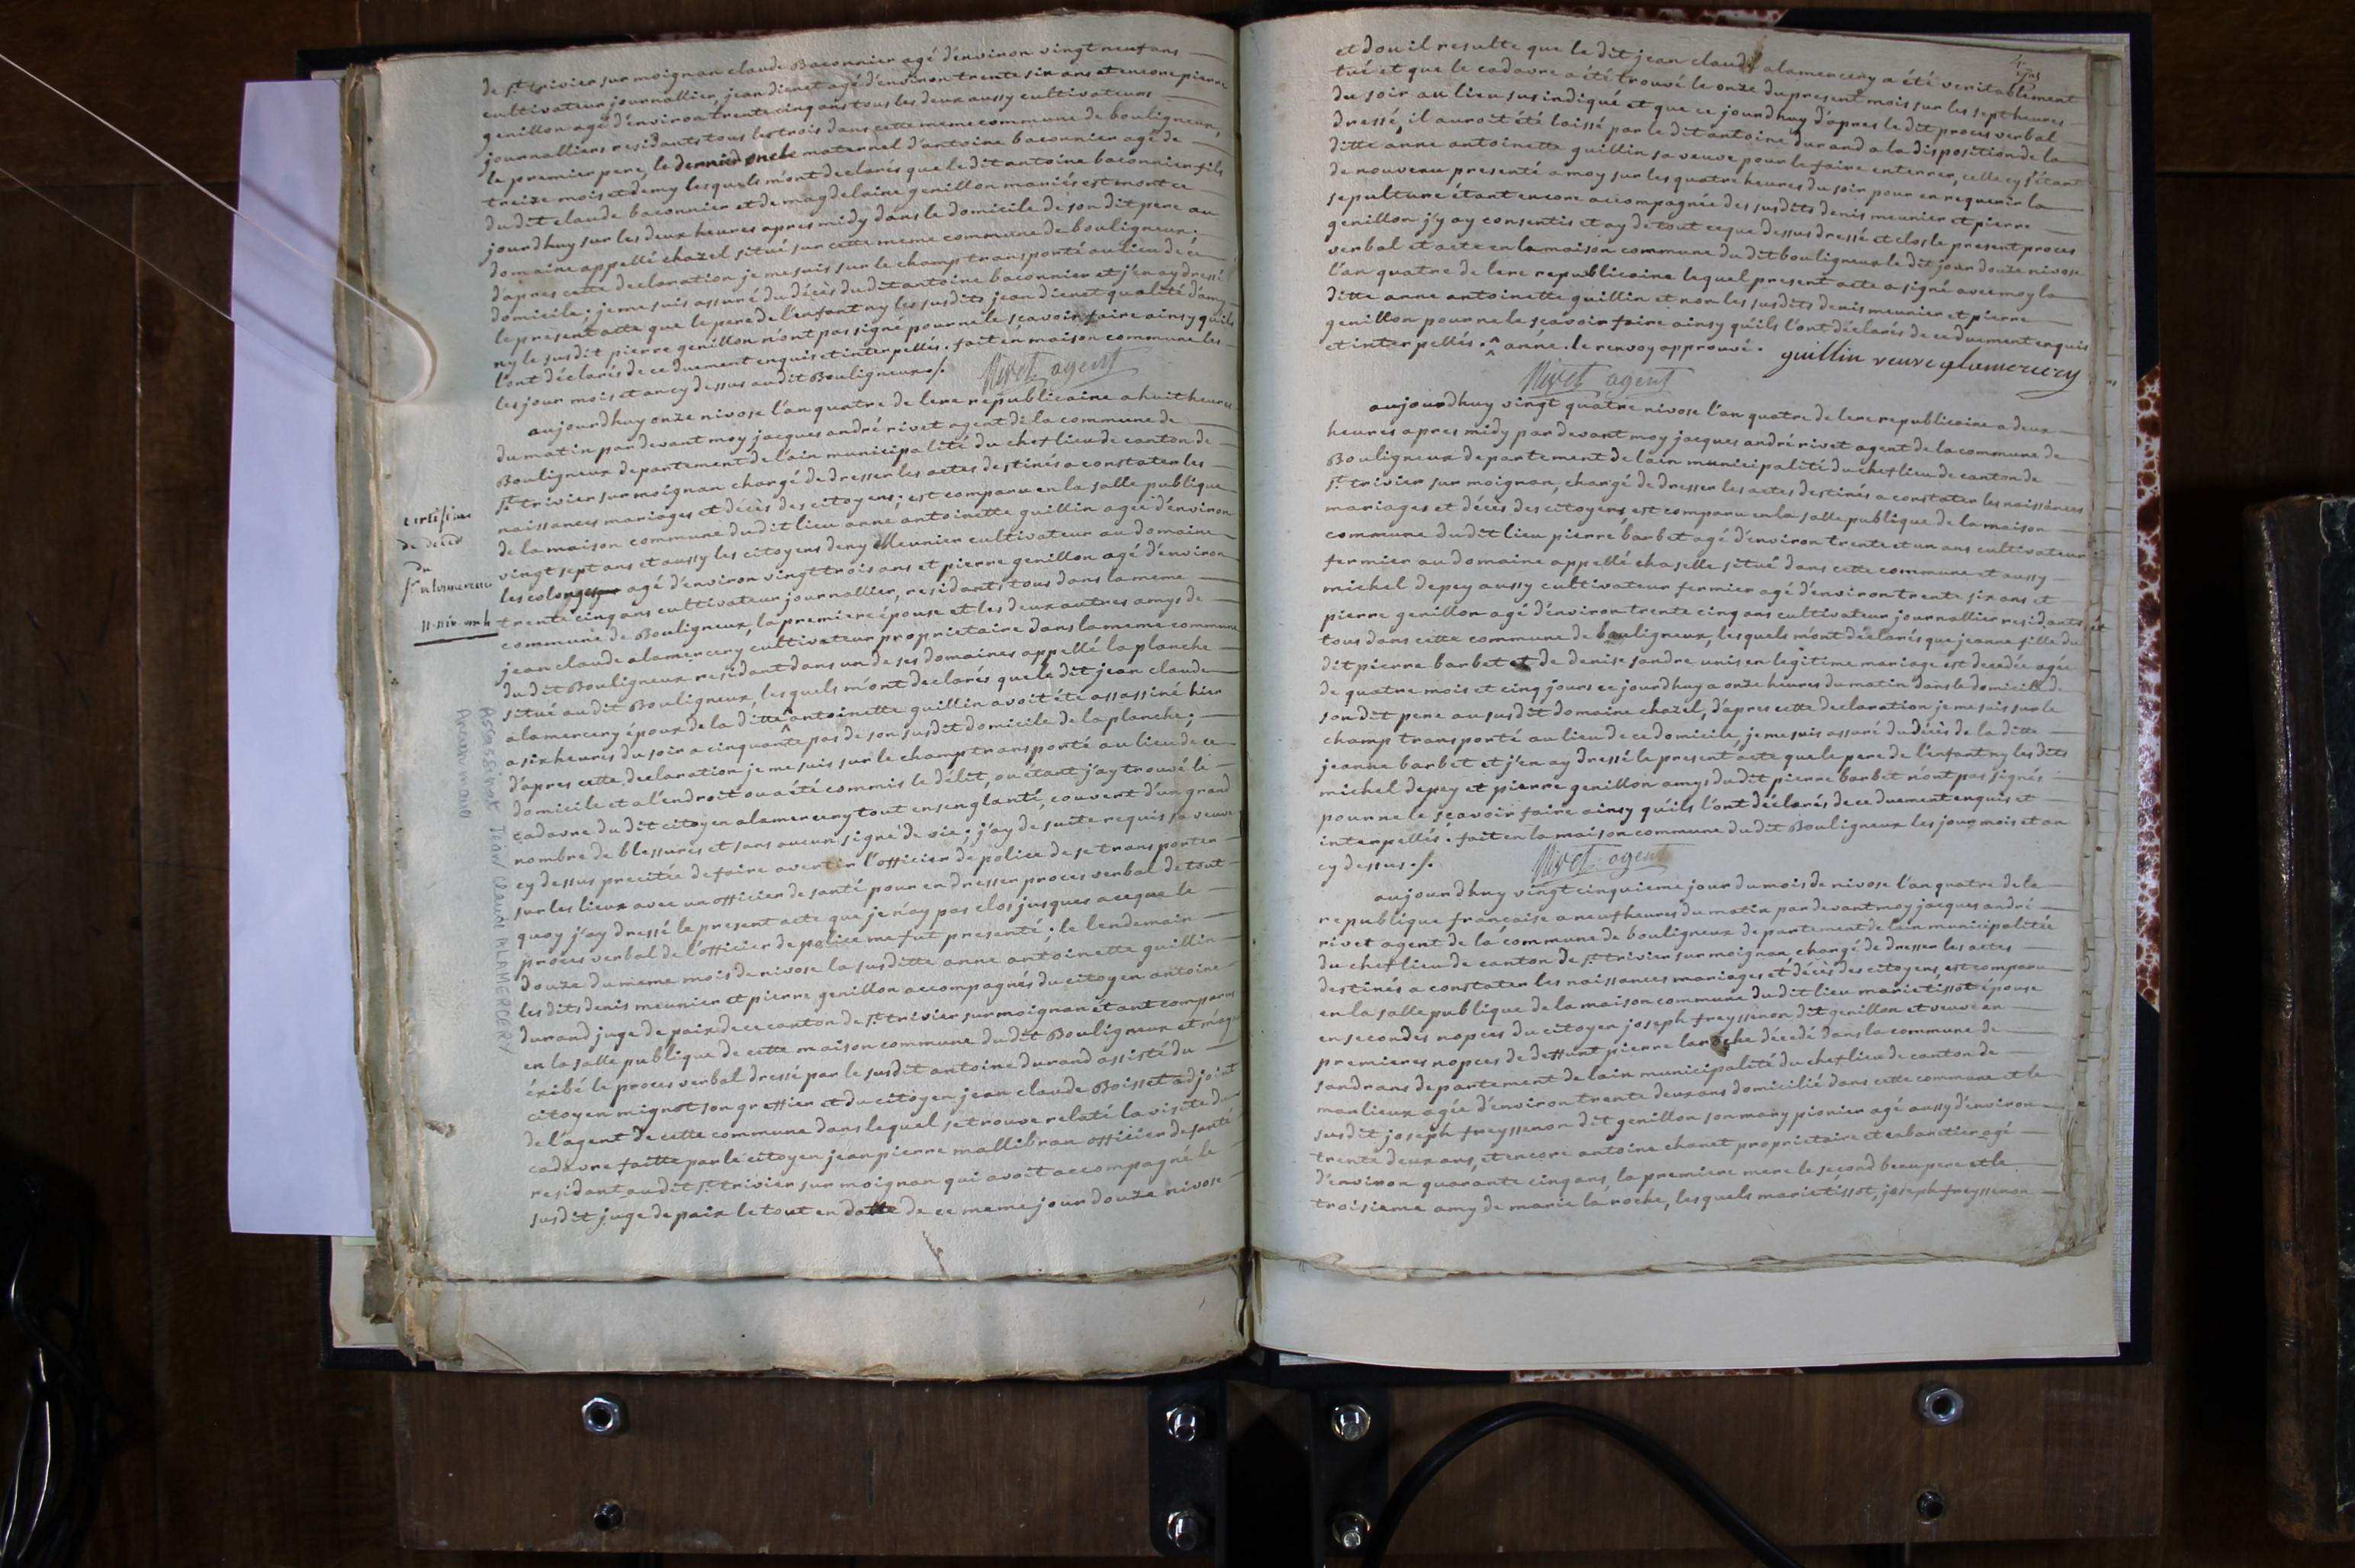 de st. trivier sur moignan claude Baconnier agé d'environ vingt neuf ans
cultivateur journallier, jean dienet agé d'environ trente six ans et encore pierre
genillon agé d'environ trente cinq ans tous les deux aussy cultivateurs
journalliers residants tous les trois dans cette meme commune de bouligneux,
le premier pere, le dernier oncle maternel d'antoine baconnier agé de
treize mois et demy lesquels m'ont declarés que le dit antoine baconnier fils
du dit claude baconnier et de magdelaine genillon mariés est mort ce
jourdhuy sur les deux heures apres midy dans le domicile de son dit pere au
domaine appellé chazel situé sur cette meme commune de bouligneux.
d'apres cette declaration je me suis sur le champ transporté au lieu de ce
domicile; je me suis assuré du décès du dit antoine baconnier et j'en ay dressé
le present acte que le pere de l'enfant ny les susdits jean dienet qualité d'amy
ny le susdit pierre genillon n'ont pas signé pour ne le sçavoir faire ainsy quils
l'ont déclarés de ce duement enquis et interpellés. fait en maison commune les
les jour mois et an cy dessus au dit Bouligneux ./.
Rivet agent
aujourdhuy onze nivose l'an quatre de l'ere republicaine a huit heures
du matin pardevant moy jacques andré rivet agent de la commune de
Bouligneux departement de l'ain municipalité du chef lieu de canton de
st. trivier sur moignan chargé de dresser les actes destinés a constater les
naissances mariages et décès des citoyens; est comparu en la salle publique
de la maison commune du dit lieu anne antoinette guillin agée d'environ
vingt sept ans et aussy les citoyens deny Meunier cultivateur au domaine
les colonges agé d'environ vingt trois ans et pierre genillon agé d'environ
trente cinq ans cultivateur journallier, residants tous dans la meme
commune de Bouligneux, la premiere épouse et les deux autres amys de
jean claude alamercery cultivateur proprietaire dans la meme commune
du dit Bouligneux residant dans un de ses domaines appellé la planche
situé au dit Bouligneux, lesquels m'ont declarés que le dit jean claude
alamercery époux de la ditte ^ antoinette guillin avoit été assassiné hier
a six heures du soir a cinquante pas de son susdit domicile de la planche;
d'apres cette declaration je me suis sur le champ transporté au lieu de ce
domicile et a l'endroit ou a été commis le délit, ou étant j'ay trouvé le
cadavre du dit citoyen alamercery tout ensenglanté, couvert d'un grand
nombre de blessures et sans aucun signe de vie; j'ay de suite requis sa veuve
cy dessus precitée de faire avertir l'officier de police de se transporter
sur les lieux avec un officier de santé pour en dresser proces verbal de tout
quoy j'ay dressé le present acte que je n'ay pas clos jusques a ce que le
proces verbal de l'officier de police me fut presenté; le lendemain
douze du meme mois de nivose la susditte anne antoinette guillin
les dits denis meunier et pierre genillon accompagnés du citoyen antoine
durand juge de paix de ce canton de st. trivier sur moignan étant comparus
en la salle publique de cette maison commune du dit Bouligneux et m'ayant
éxibé le proces verbal dressé par le susdit antoine durand assisté du
citoyen mignot son greffier et du citoyen jean claude Boisset adjoint
de l'agent de cette commune dans lequel se trouve relaté la visite du
cadavre faitte par le citoyen jean pierre mallibran officier de santé
residant au dit st. trivier sur moignan qui avoit accompagné le
susdit juge de paix le tout en datte de ce meme jour douze nivose
de deces
du
Sr alamercery
11 niv. an 4
Assassinat Jean Claude ALAMERCERY
et dou il resulte que le dit jean claude alamercery a été veritablement
tué et que le cadavre a été trouvé le onze du present mois sur les sept heures
du soir au lieu sus indiqué et que ce jourdhuy d'apres le dit proces verbal
dressé, il auroit été laissé par le dit antoine durand a la disposition de la
ditte anne antoinette guillin sa veuve pour le faire enterrer, celle cy s'étant
de nouveau presenté a moy sur les quatre heures du soir pour en requerir la
sepulture étant encore accompagnée des susdits denis meunier et pierre
genillon j'y ay consentis et ay de tout ce que dessus dressé et clos le present proces
verbal et acte en la maison commune du dit bouligneux le dit jour douze nivose
l'an quatre de l'ere republicaine lequel present acte a signé avec moy la
ditte anne antoinette guillin et non les susdits denis meunier et pierre
genillon pour ne le sçavoir faire ainsy qu'ils l'ont déclarés de ce duement enquis
et interpellés. ^ anne. le renvoy approuvé. guillin veuve alamercery
Rivet agent
aujourdhuy vingt quatre nivose l'an quatre de l'ere republicaine a deux
heures apres midy pardevant moy jacques andré rivet agent de la commune de
Bouligneux departement de l'ain municipalité du chef lieu de canton de
st. trivier sur moignan, chargé de dresser les actes destinés a constater les naissances
mariages et décès des citoyens, est comparu en la salle publique de la maison
commune du dit lieu pierre barbet agé d'environ trente et un ans cultivateur
fermier au domaine appellé chaselle situé dans cette commune et aussy
michel depey aussy cultivateur fermier agé d'environ trente six ans et
pierre genillon agé d'environ trente cinq ans cultivateur journallier residants
tous dans cette commune de bouligneux, lesquels m'ont déclarés que jeanne fille du
dit pierre barbet et de denise sandre unis en legitime mariage est decedée agée
de quatre mois et cinq jours ce jourdhuy a onze heures du matin dans le domicille de
son dit pere au susdit domaine chazel, d'apres cette declaration je me suis sur le
champ transporté au lieu de ce domicile je me suis assuré du décès de la ditte
jeanne barbet et j'en ay dressé le present acte que le pere de l'enfant ny les dits
michel depey et pierre genillon amys du dit pierre barbet n'ont pas signés
pour ne le sçavoir faire ainsy qu'ils l'ont déclarés de ce duement enquis et
interpellés. fait en la maison commune du dit Bouligneux les jour mois et an
cy dessus ./.
Rivet agent
aujourdhuy vingt cinquieme jour du mois de nivose l'an quatre de la
republique française a neuf heures du matin pardevant moy jacques andré
rivet agent de la commune de bouligneux departement de l'ain municipalitée
du chef lieu de canton de st. trivier sur moignan, chargé de dresser les actes
destinés a constater les naissances mariages et décès des citoyens, est comparu
en la salle publique de la maison commune du dit lieu marie tissot épouse
en secondes nopces du citoyen joseph freyssenon dit genillon et veuve en
premieres nopces de deffunt pierre laroche décédé dans la commune de
sandrans departement de lain municipalité du chef lieu de canton de
marlieux agée d'environ trente deux ans domicilié dans cette commune et le
susdit joseph freyssenon dit genillon son mary pionier agé aussy d'environ
trente deux ans, et encore antoine chanet proprietaire et cabaretier agé
d'environ quarante cinq ans, la premiere mere le second beau pere et le
troisieme amy de marie la roche, lesquels marie tissot, joseph freyssenon